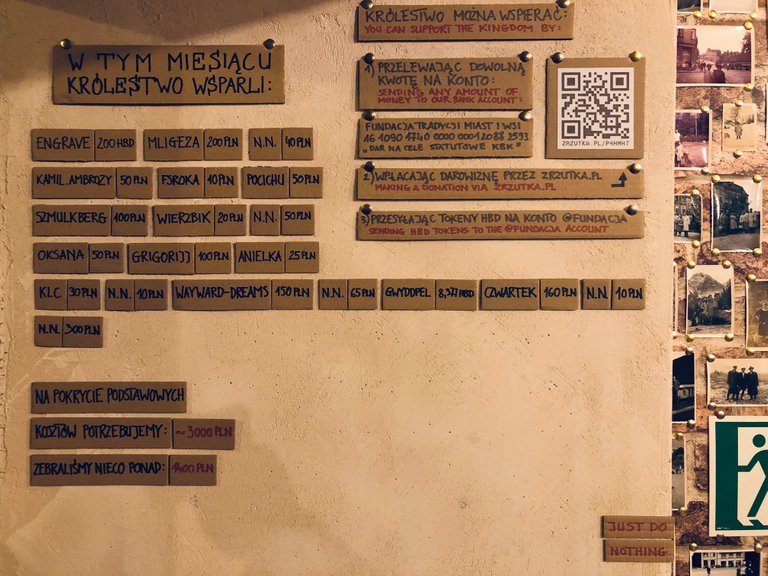 W TYM MIESIĄCU
KRÓLESTWO WSPARLI:
ENGRAVE 200 HBD MLIGEZA 200 PLN N.N. 40 PLN
KAMIL.AMBROZY 50 PLN FSROKA 10 PLN POCICHU 50 PLN
SZMULKBERG 100 PLN WIERZBIK 20 PLN N.N. 50 PLN
OKSANA 50 PLN GRIGORIJJ 100 PLN ANIELKA 25 PLN
KLC 30 PLN N.N. 10 PLN WAYWARD-DREAMS 150 PLN N.N. 65 PLN GWYDDPEL 8,377 HBD CZWARTEK 160 PLN N.N. 10 PLN
N.N. 300 PLN
NA POKRYCIE PODSTAWOWYCH
KOSZTÓW POTRZEBUJEMY: ~3000 PLN
ZEBRALIŚMY NIECO PONAD: 1400 PLN
KRÓLESTWO MOŻNA WSPIERAĆ:
YOU CAN SUPPORT THE KINGDOM BY:
1) PRZELEWAJĄC DOWOLNĄ
KWOTĘ NA KONTO:
SENDING ANY AMOUNT OF
MONEY TO OUR BANK ACCOUNT:
FUNDACJA TRADYCJI MIAST I WSI
16 1090 1740 0000 0001 2088 2593
"DAR NA CELE STATUTOWE KBK"
ZRZUTKA.PL/P4HMH7
2) WPŁACAJĄC DAROWIZNĘ PRZEZ ZRZUTKA.PL
MAKING A DONATION VIA ZRZUTKA.PL
3) PRZESYŁAJĄC TOKENY HBD NA KONTO @FUNDACJA
SENDING HBD TOKENS TO THE @FUNDACJA ACCOUNT
JUST DO
NOTHING